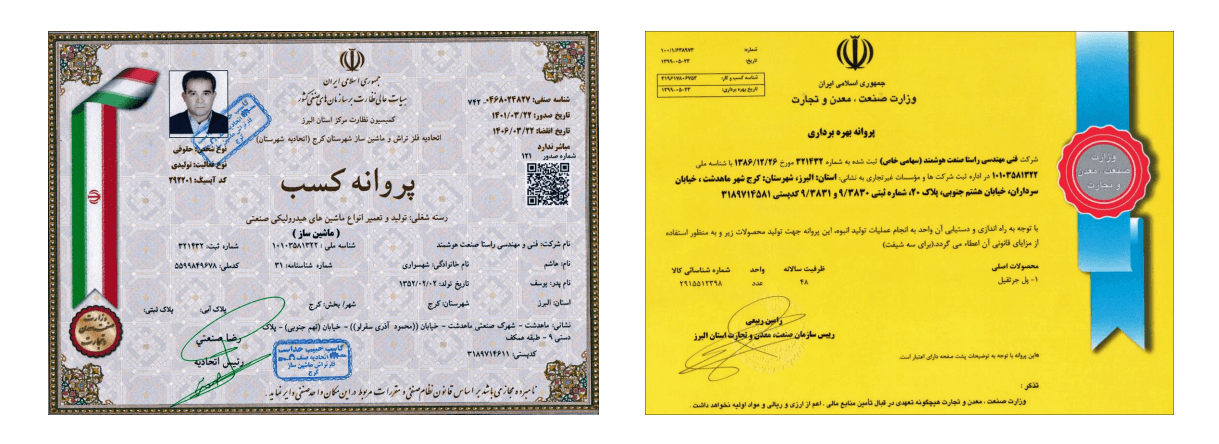 جمهوری اسلامی ایران
هیات عالی نظارت بر سازمان های صنفی کشور
کمیسیون نظارت مرکز استان البرز
اتحادیه فلز تراش و ماشین ساز شهرستان کرج (اتحادیه شهرستان)
شناسه صنفی: ۰۴۶۸۰۲۴۸۲۷ـ ۷۴۲
تاریخ صدور: ۱۴۰۱/۰۳/۲۲
تاریخ انقضا: ۱۴۰۶/۰۳/۲۲
مباشر ندارد
شماره صدور ۱۲۱
نوع شخص: حقوقی
نوع فعالیت: تولیدی
کد آیسیک: ۲۹۲۲۰۱
پروانه کسب
رسته شغلی: تولید و تعمیر انواع ماشین های هیدرولیکی صنعتی
( ماشین ساز )
نام شرکت: فنی و مهندسی راستا صنعت هوشمند شناسه ملی : ۱۰۱۰۳۵۸۱۳۲۲ شماره ثبت: ۳۲۱۴۳۲
نام: هاشم نام خانوادگی: شهسواری شماره شناسنامه: ۳۱ کدملی: ۵۵۹۹۸۴۹۶۷۸
نام پدر: یوسف تاریخ تولد: ۱۳۵۲/۰۲/۰۲
استان: البرز شهرستان: کرج شهر/ بخش: کرج پلاک آبی: پلاک ثبتی:
نشانی: ماهدشت - شهرک صنعتی ماهدشت - خیابان ((محمود آذری سفرلو)) - خیابان (نهم جنوبی) - پلاک
دستی ۹ - طبقه همکف
کدپستی: ۳۱۸۹۷۱۴۶۱۱
رضا صنعتی
رئیس اتحادیه
کاسب حبیب خداست
اتحادیه صنف
فلز تراش ماشین ساز
کرج
وزارت
صنعت، معدن
و تجارت
نامبرده مجاز می باشد بر اساس قانون نظام صنفی و مقررات مربوط در این مکان واحد صنفی دایر نماید.
شماره: ۱۰۰/۱/۶۳۸۹۷۳
تاریخ: ۱۳۹۹-۰۵-۲۳
شناسه کسب و کار: ۲۱۹۶۱۷۸۰۶۷۵۳
تاریخ بهره برداری: ۱۳۹۹-۰۵-۲۳
جمهوری اسلامی ایران
وزارت صنعت ، معدن و تجارت
پروانه بهره برداری
شرکت فنی مهندسی راستا صنعت هوشمند (سهامی خاص) ثبت شده به شماره ۳۲۱۴۳۲ مورخ ۱۳۸۶/۱۲/۲۶ با شناسه ملی
۱۰۱۰۳۵۸۱۳۲۲ در اداره ثبت شرکت ها و مؤسسات غیرتجاری به نشانی: استان: البرز، شهرستان: کرج شهر ماهدشت ، خیابان
سرداران، خیابان هشتم جنوبی، پلاک ۲۰، شماره ثبتی ۹/۳۸۳۰ و ۹/۳۸۳۱ کدپستی ۳۱۸۹۷۱۴۵۸۱
با توجه به راه اندازی و دستیابی آن واحد به انجام عملیات تولید انبوه، این پروانه جهت تولید محصولات زیر و به منظور استفاده
از مزایای قانونی آن اعطاء می گردد.(برای سه شیفت)
محصولات اصلی ظرفیت سالانه واحد شماره شناسائی کالا
۱- پل جرثقیل ۴۸ عدد ۲۹۱۵۵۱۲۳۹۸
رامین ربیعی
رییس سازمان صنعت، معدن و تجارت استان البرز
وزارت
صنعت، معدن
و تجارت
«این پروانه با توجه به توضیحات پشت صفحه دارای اعتبار است.
تذکر :
وزارت صنعت ، معدن و تجارت هیچگونه تعهدی در قبال تأمین منابع مالی ، اعم از ارزی و ریالی و مواد اولیه نخواهد داشت .